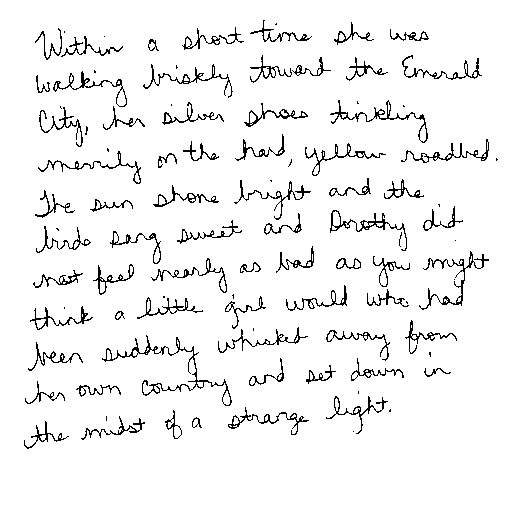 Within a short time she was
walking briskly toward the Emerald
City, her silver shoes tinkling
merrily on the hard, yellow roadbed.
The sun shone bright and the
birds sang sweet and Dorothy did
not feel nearly as bad as you might
think a little girl would who had
been suddenly whisked away from
her own country and set down in
the midst of a strange light.